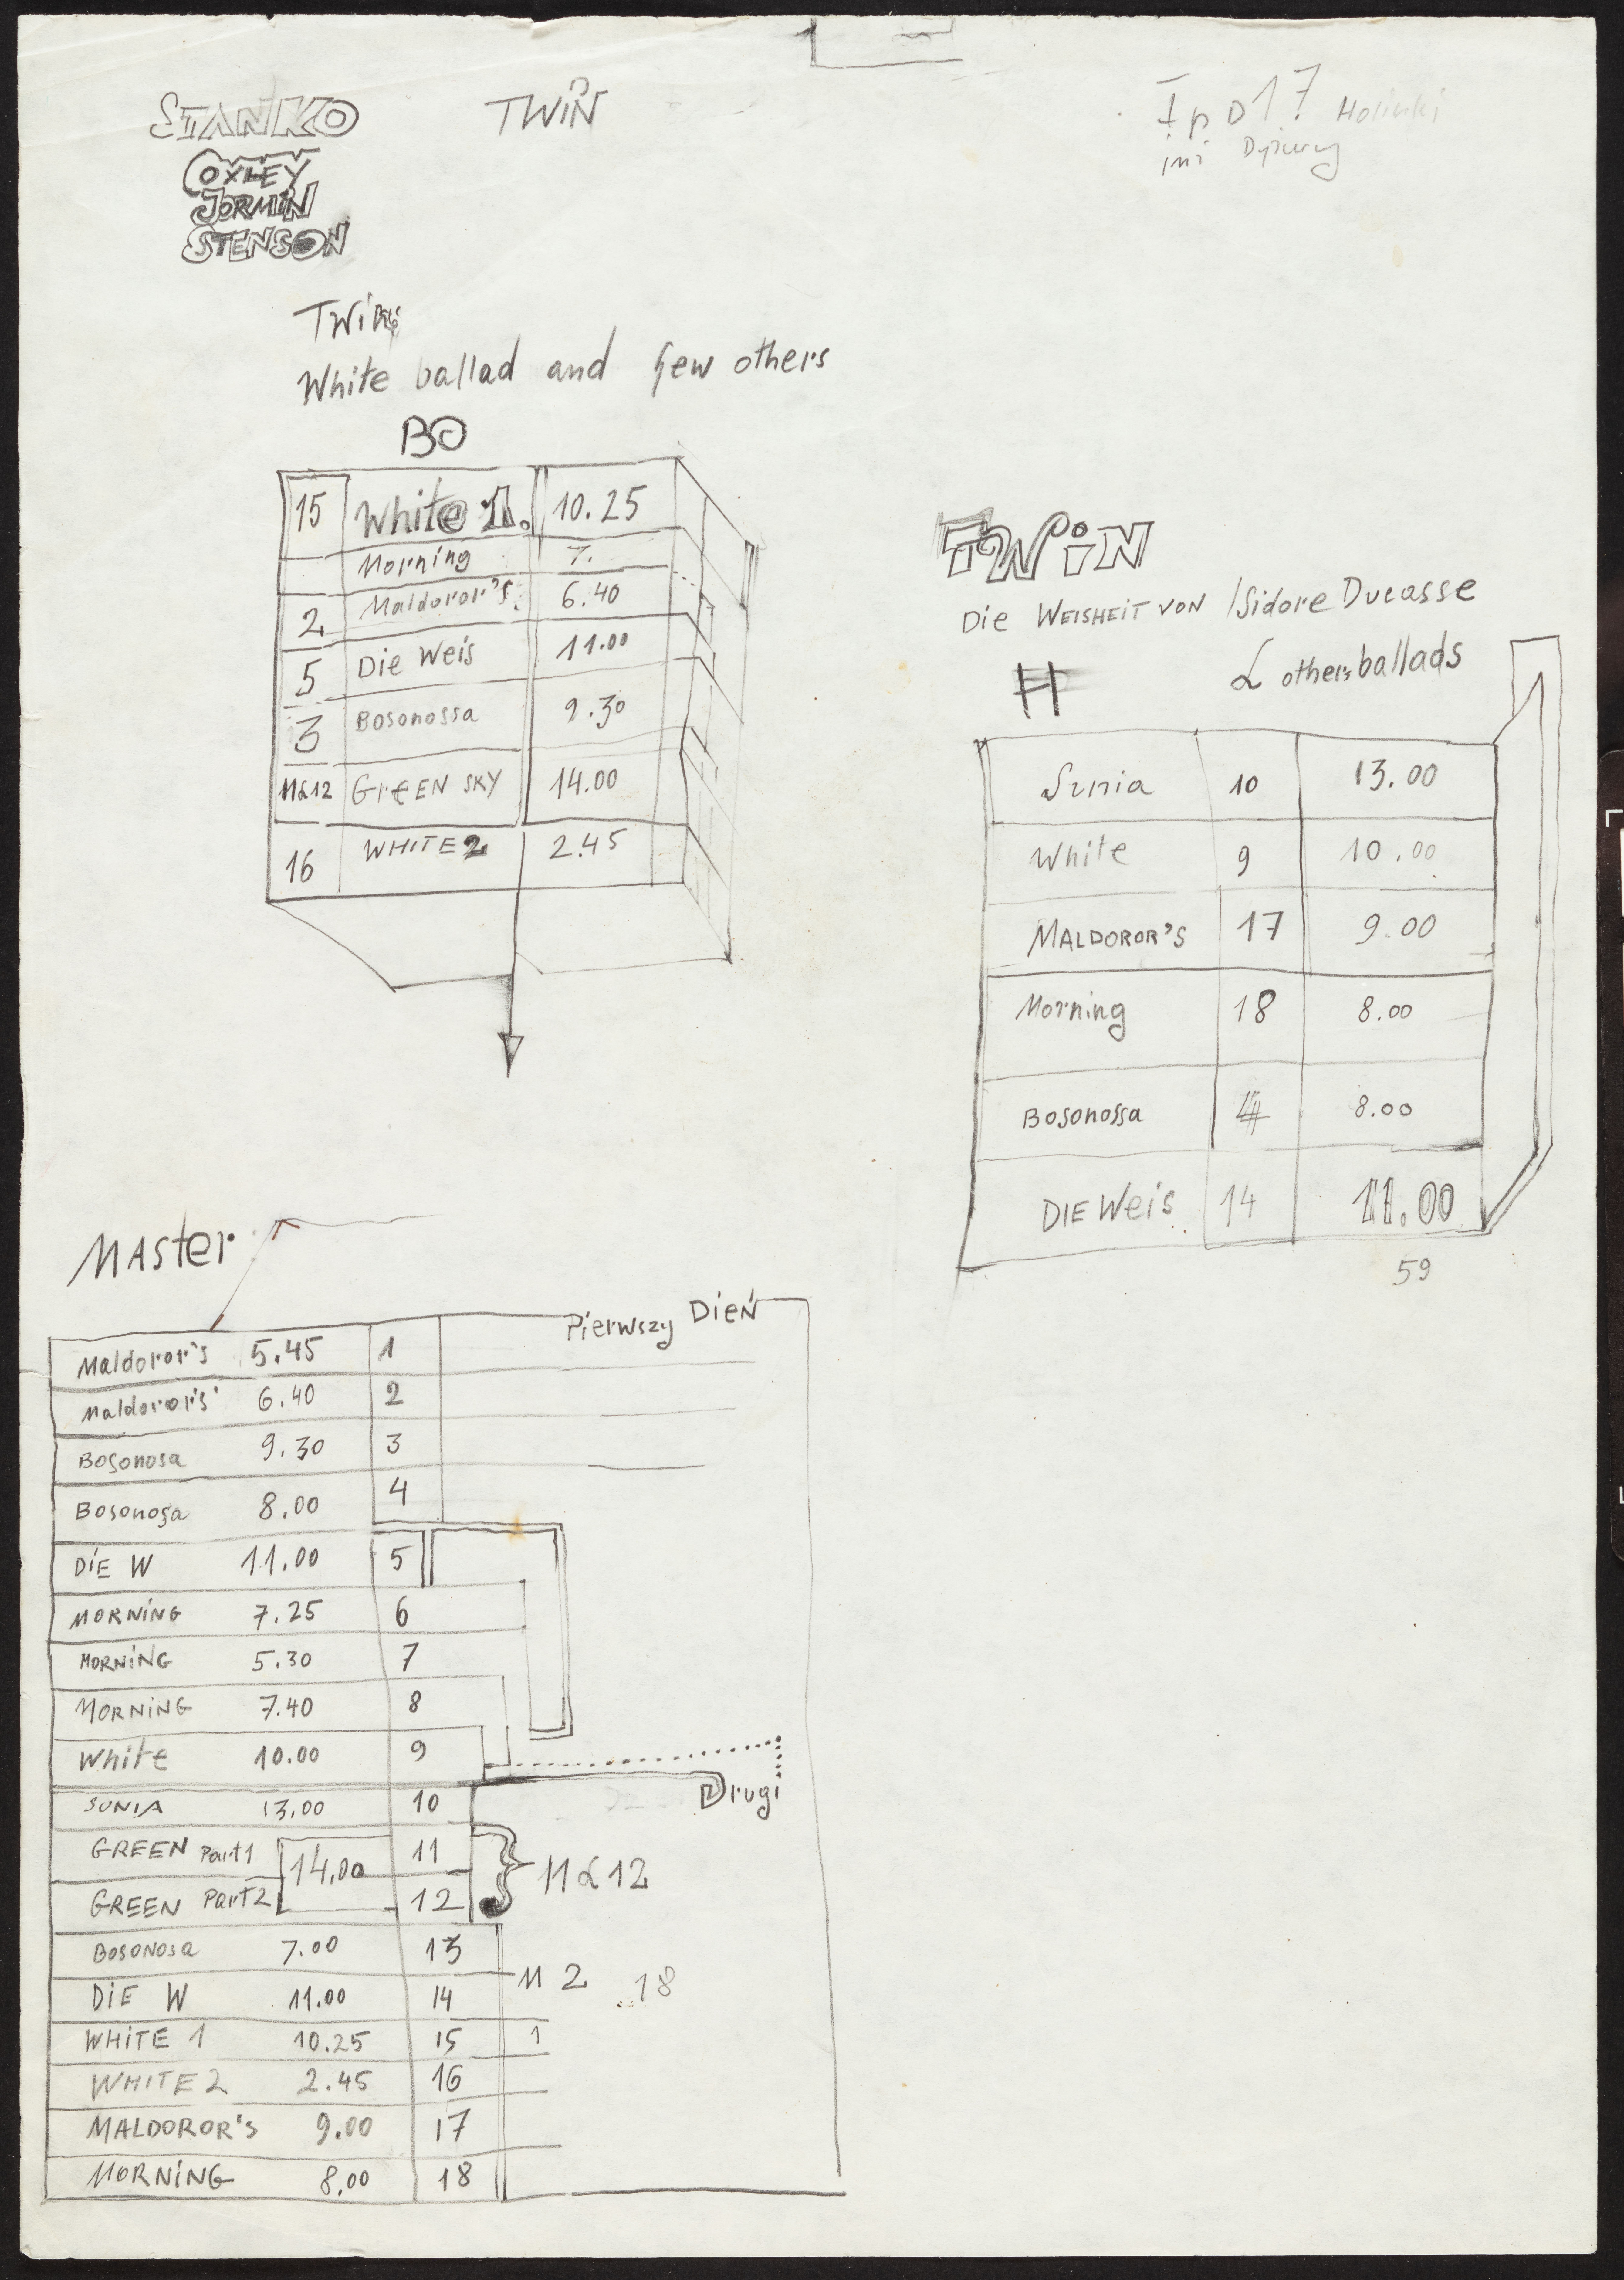 STANKO
TWIN
OXLEY
JORMIN
STENSON
White ballad and few others
BO
15 White 1. 10.25
Morning 7.
2 Maldoror's. 6.40
5 Die Weis 11.00
3 Bosonossa 9.30
11&12 GreEN SKY 14.00
16 WHITE 2 2.45
TWiN
Die WEISHEIT VON Isidore Ducasse
H & others ballads
Sunia 10 13.00
White 9 10.00
MALDOROR'S 17 9.00
Morning 18 8.00
Bosonossa 4 8.00
DIE Weis 14 11.00
59
MASter
Pierwszy Dień
Maldoror's 5.45 1
Maldoror's' 6.40 2
Bosonosa 9.30 3
Bosonosa 8.00 4
DiE W 11.00 5
MORNiNG 7.25 6
MORNiNG 5.30 7
MORNiNG 7.40 8
White 10.00 9
Drugi
SUNIA 13.00 10
GREEN Part1 14.00 11
11&12
GREEN Part2 12
BOSONOSa 7.00 13
DiE W 11.00 14
11 2 18
WHiTE 1 10.25 15 1
WHITE 2 2.45 16
MALDOROR'S 9.00 17
MORNiNG 8.00 18